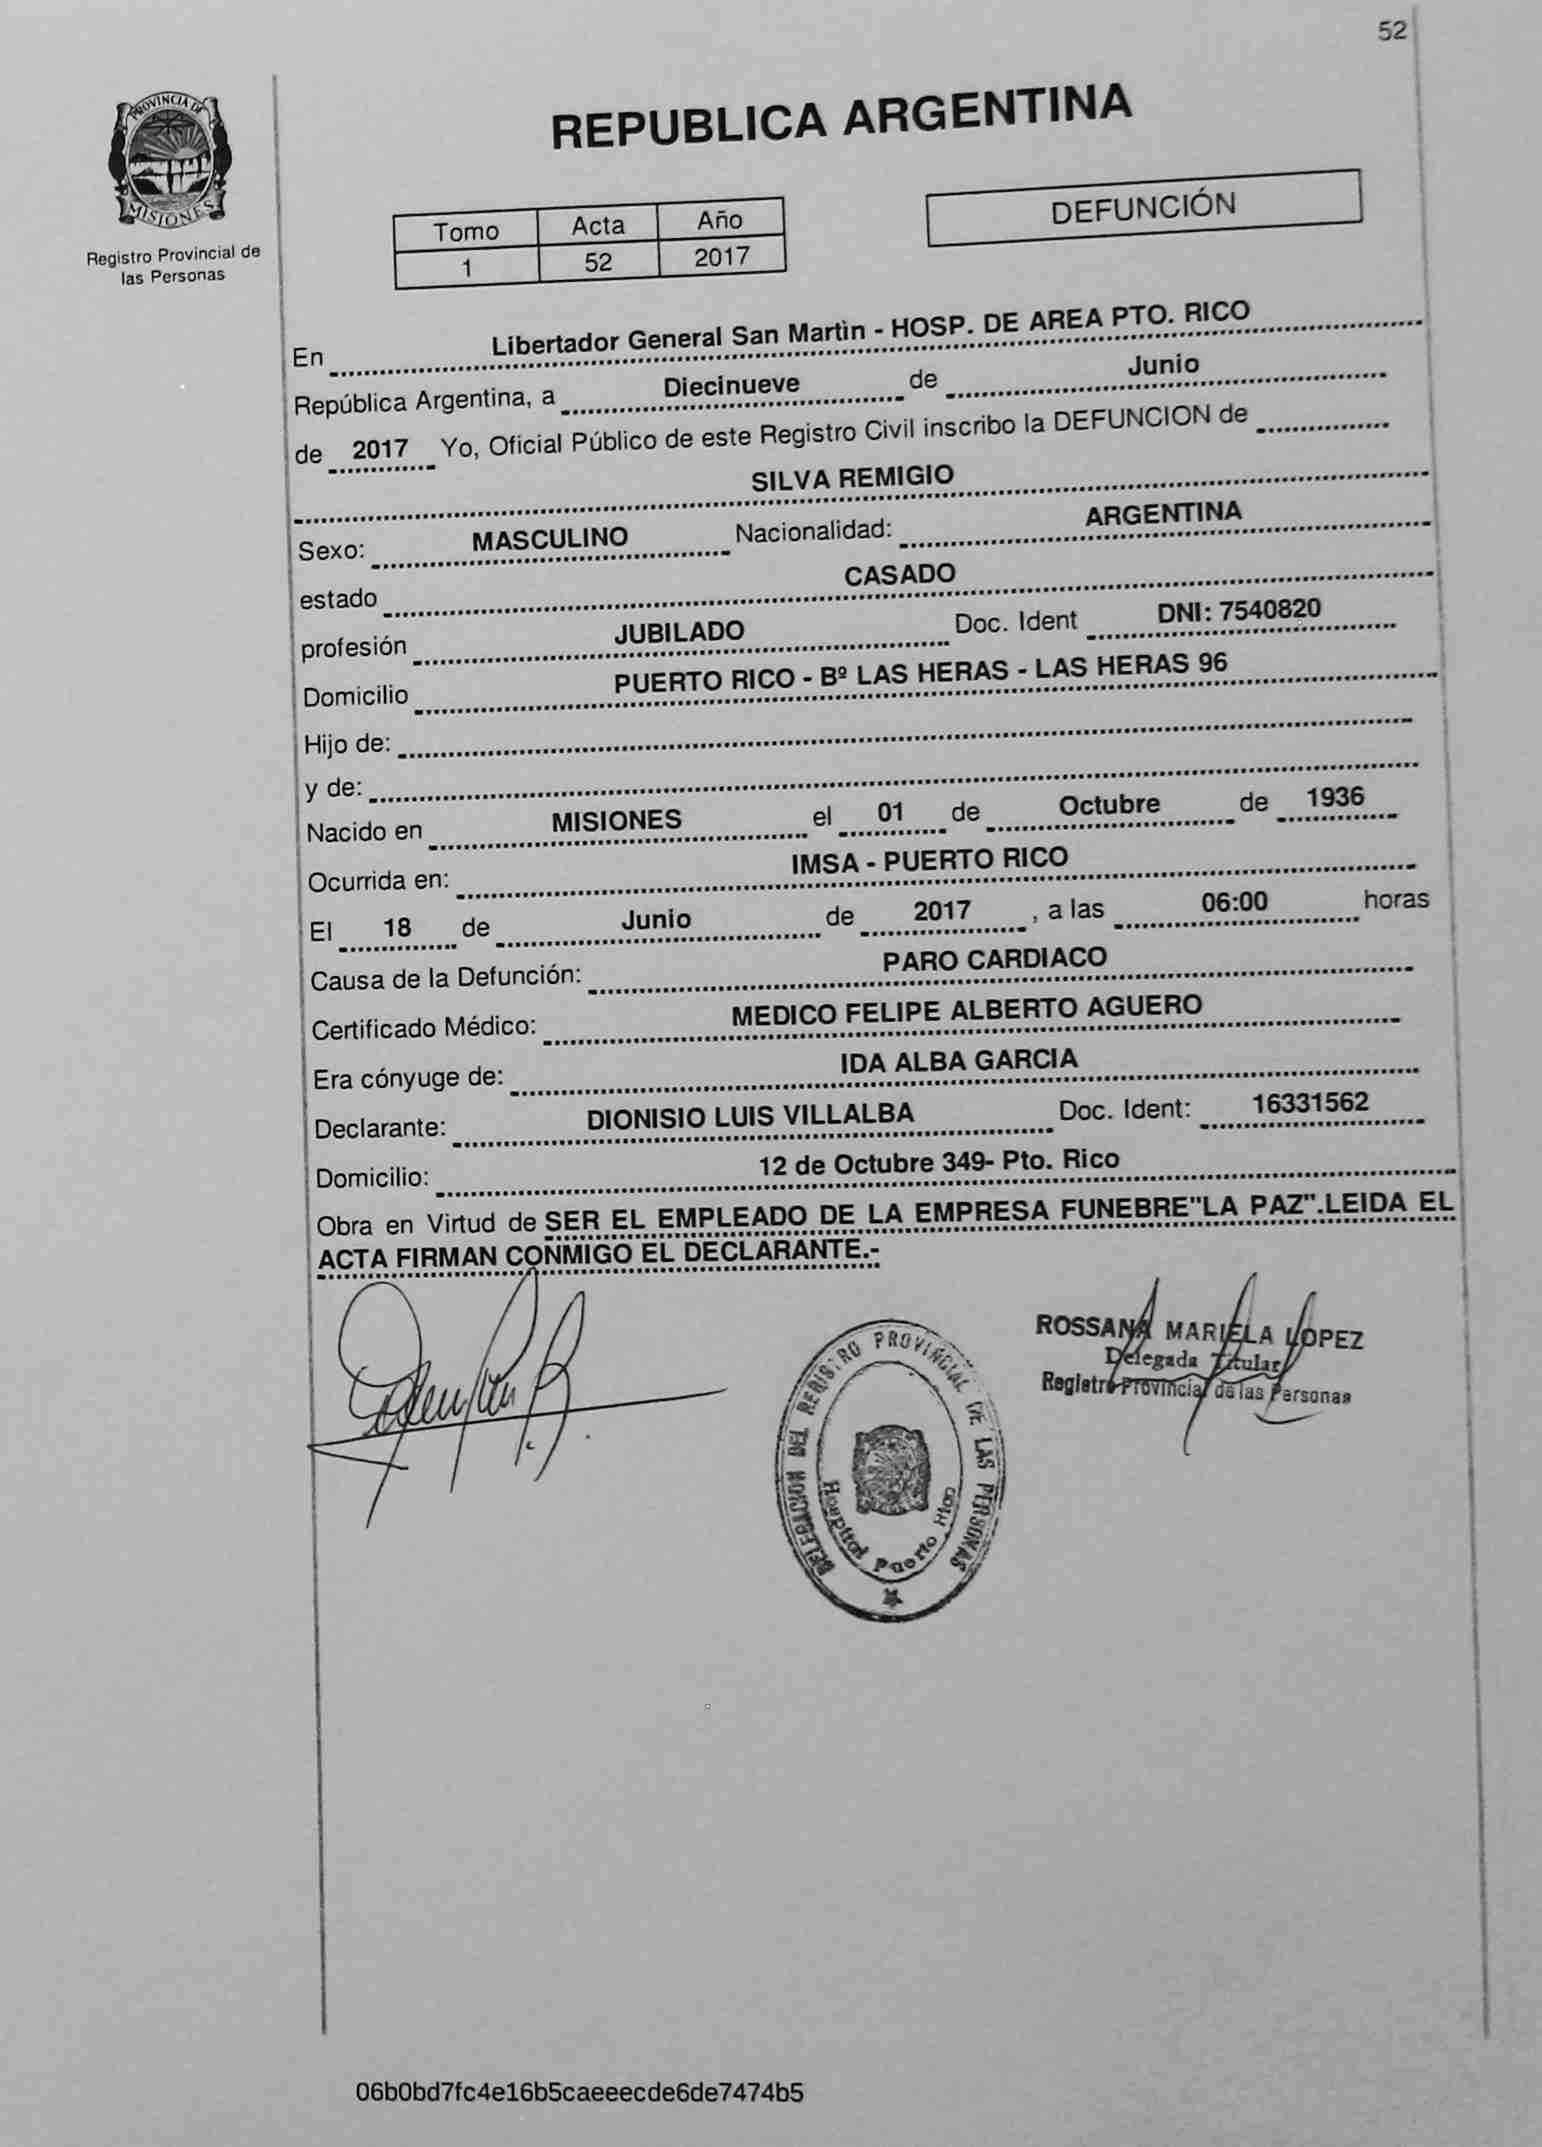 52
PROVINCIA DE
MISIONES
Registro Provincial de
las Personas
REPUBLICA ARGENTINA
Tomo Acta Año
1 52 2017
DEFUNCIÓN
En Libertador General San Martìn - HOSP. DE AREA PTO. RICO
República Argentina, a Diecinueve de Junio
de 2017 Yo, Oficial Público de este Registro Civil inscribo la DEFUNCION de
SILVA REMIGIO
Sexo: MASCULINO Nacionalidad: ARGENTINA
estado CASADO
profesión JUBILADO Doc. Ident DNI: 7540820
Domicilio PUERTO RICO - Bº LAS HERAS - LAS HERAS 96
Hijo de:
y de:
Nacido en MISIONES el 01 de Octubre de 1936
Ocurrida en: IMSA - PUERTO RICO
El 18 de Junio de 2017 , a las 06:00 horas
Causa de la Defunción: PARO CARDIACO
Certificado Médico: MEDICO FELIPE ALBERTO AGUERO
Era cónyuge de: IDA ALBA GARCIA
Declarante: DIONISIO LUIS VILLALBA Doc. Ident: 16331562
Domicilio: 12 de Octubre 349- Pto. Rico
Obra en Virtud de SER EL EMPLEADO DE LA EMPRESA FUNEBRE"LA PAZ".LEIDA EL
ACTA FIRMAN CONMIGO EL DECLARANTE.-
ROSSANA MARIELA LOPEZ
Delegada Titular
Registro Provincial de las Personas
DELEGACION DEL REGISTRO PROVINCIAL DE LAS PERSONAS
Hospital Puerto Rico
06b0bd7fc4e16b5caeeecde6de7474b5